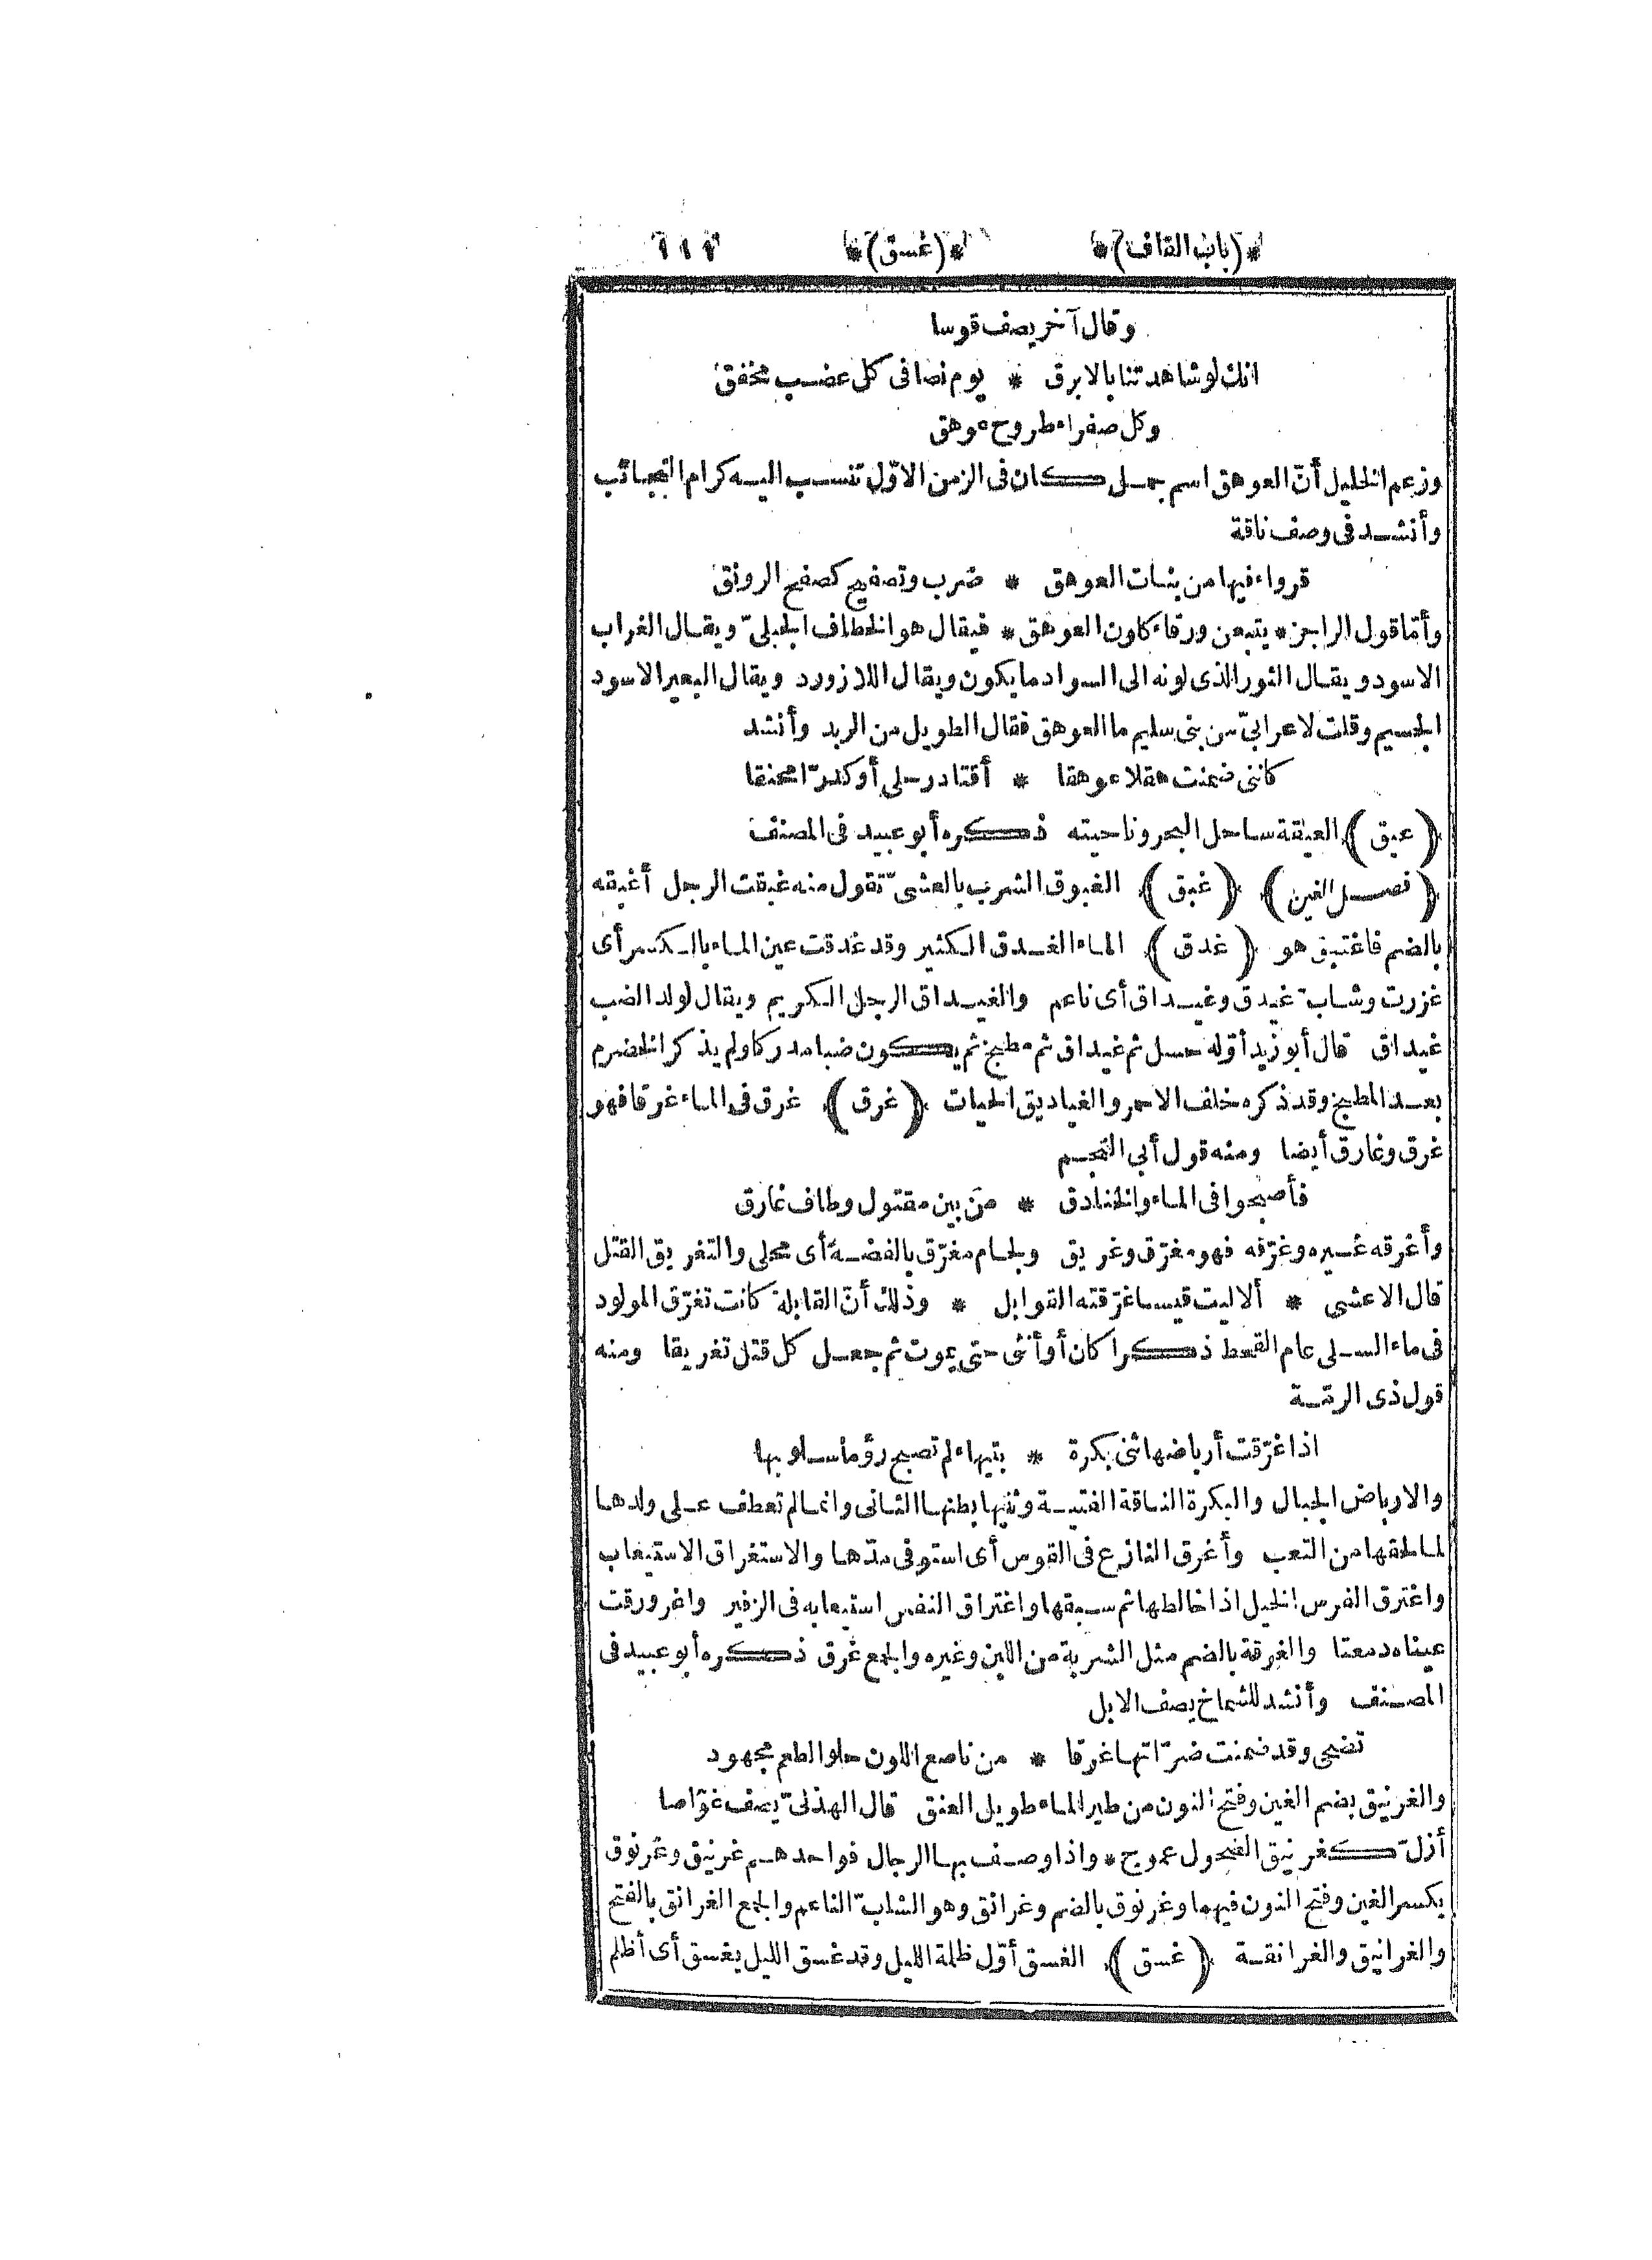 *(باب القاف)* *(غسق)* ١١٢
وقال آخر يصف قوسا
انك لو شاهدتنا بالابرق * يوم نصافى كل عضب مخفق
وكل صفراء طروح عوهق
وزعم الخليل أنّ العوهق اسم جمل كان فى الزمن الاوّل تنسب اليه كرام النجائب
وأنشد فى وصف ناقة
قرواء فيها من بنات العوهق * ضرب وتصفيح كصفح الرونق
وأمّا قول الراجز * يتبعن ورقاء كلون العوهق * فيقال هو الخطاف الجبلىّ ويقال الغراب
الاسود ويقال الثور الذى لونه الى السواد ما يكون ويقال اللازورد ويقال البعير الاسود
الجسيم وقلت لاعرابىّ من بنى سليم ما العوهق فقال الطويل من الربد وأنشد
كاننى ضمنت هقلا عوهقا * أقتاد رحلى أو كدرّا محنقا
(عيق) العيقة ساحل البحر وناحيته ذكره أبو عبيد فى المصنف
(فصل الغين) (غبق) الغبوق الشرب بالعشىّ تقول منه غبقت الرجل أغبقه
بالضم فاغتبق هو (غدق) الماء الغدق الكثير وقد غدقت عين الماء بالكسر أى
غزرت وشابّ غيدق وغيداق أى ناعم والغيداق الرجل الكريم ويقال لولد الضب
غيداق قال أبو زيد أوّله حسل ثم غيداق ثم مطبخ ثم يكون ضبا مدركا ولم يذكر الخضرم
بعد المطبخ وقد ذكره خلف الاحمر والغياديق الحيات (غرق) غرق فى الماء غرقا فهو
غرق وغارق أيضا ومنه قول أبى النجم
فأصبحوا فى الماء والخنادق * من بين مقتول وطاف غارق
وأغرقه غيره وغرّقه فهو مغرّق وغريق ولجام مغرّق بالفضة أى محلى والتغريق القتل
قال الاعشى * ألا ليت قيسا غرّقته القوابل * وذلك أنّ القابلة كانت تغرّق المولود
فى ماء السلى عام القحط ذكرا كان أو أنثى حتى يموت ثم جعل كل قتل تغريقا ومنه
قول ذى الرمّة
اذا غرّقت أرباضها ثنى بكرة * بتيهاء لم تصبح رؤما سلوبها
والارباض الحبال والبكرة الناقة الفتية وثنيها بطنها الثانى وانما لم تعطف على ولدها
لما لحقها من التعب وأغرق النازع فى القوس أى استوفى مدّها والاستغراق الاستيعاب
واغترق الفرس الخيل اذا خالطها ثم سبقها واغتراق النفس استيعابه فى الزفير واغرورقت
عيناه دمعتا والغرقة بالضم مثل الشربة من اللبن وغيره والجمع غرق ذكره أبو عبيد فى
المصنف وأنشد للشماخ يصف الابل
تضحى وقد ضمنت ضرّاتها غرقا * من ناصع اللون حلو الطعم مجهود
والغرنيق بضم الغين وفتح النون من طير الماء طويل العنق قال الهذلىّ يصف غوّاصا
أزلّ كغرنيق الضحول عموج * واذا وصف بها الرجال فواحدهم غرنيق وغرنوق
بكسر الغين وفتح النون فيهما وغرنوق بالضم وغرانق وهو الشابّ الناعم والجمع الغرانق بالفتح
والغرانيق والغرانقة (غسق) الغسق أوّل ظلمة الليل وقد غسق الليل يغسق أى أظلم